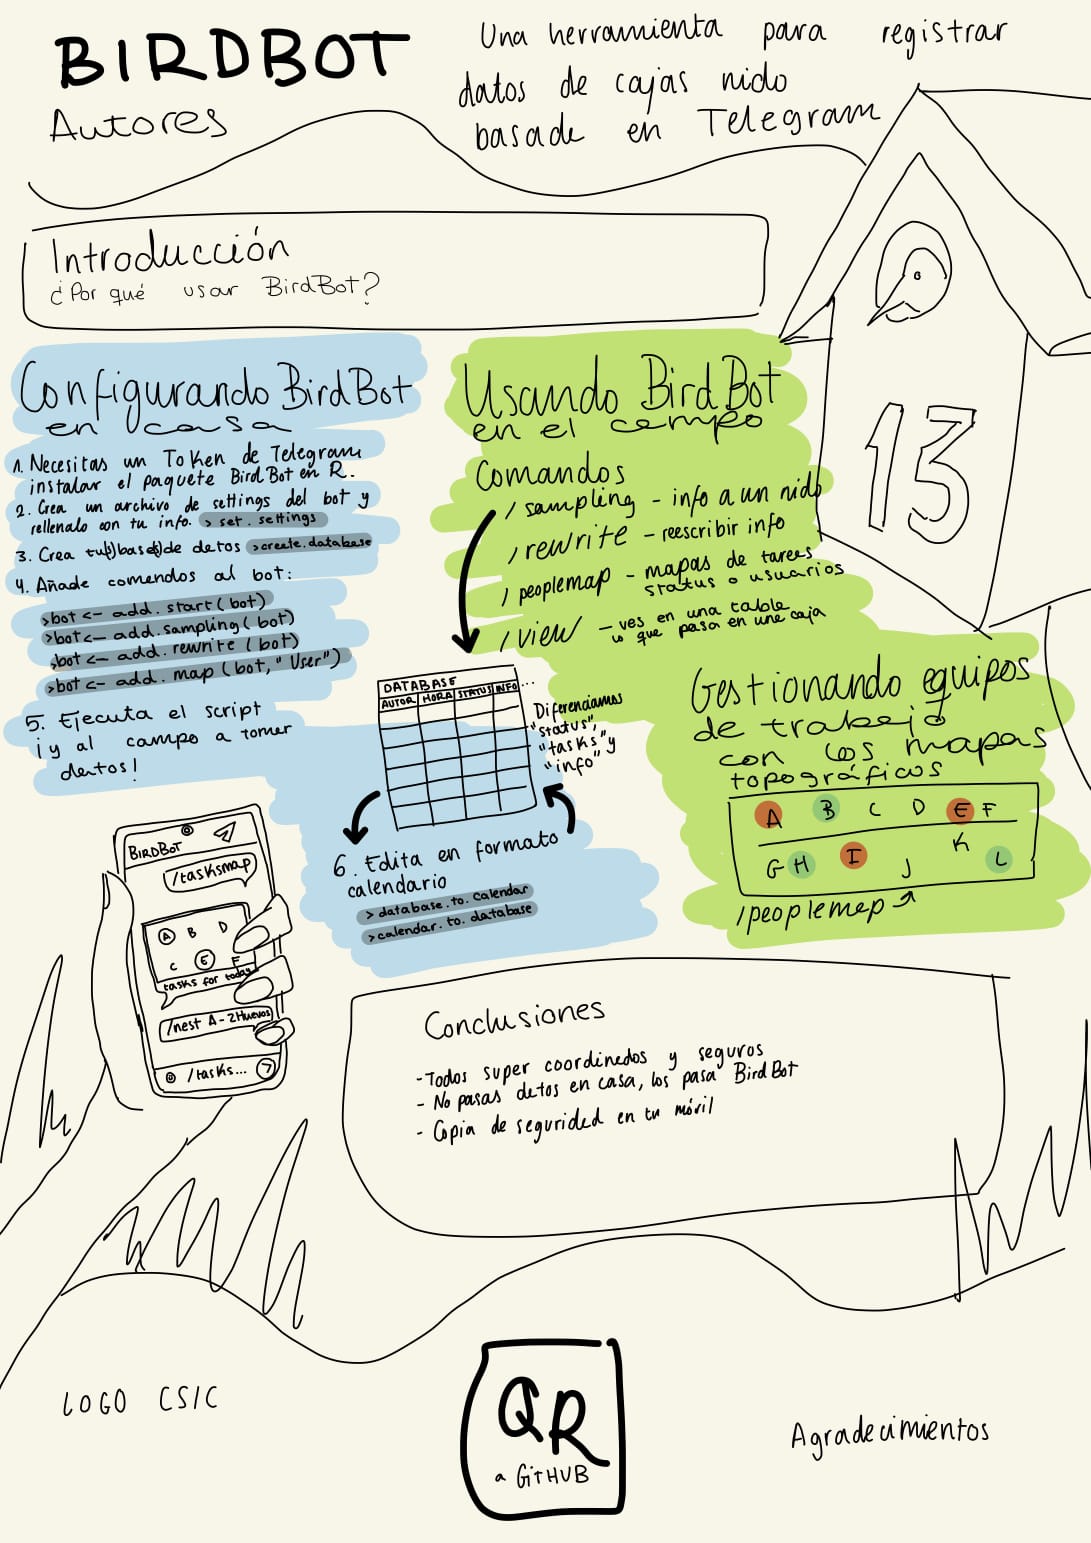 BIRDBOT
Autores
Una herramienta para registrar
datos de cajas nido
basade en Telegram
Introducción
¿Por qué usar BirdBot?
Configurando BirdBot
en casa
1. Necesitas un Token de Telegram
instalar el paquete BirdBot en R.
2. Crea un archivo de settings del bot y
rellenalo con tu info. > set.settings
3. Crea tu(s) base(s) de detos >create.database
4. Añade comendos al bot:
>bot <- add.start(bot)
>bot <- add.sampling(bot)
>bot <- add.rewrite(bot)
>bot <- add.map(bot,"User")
5. Ejecuta el script
¡y al campo a tomer
dentos!
Usando BirdBot
en el cempo
Comandos
/sampling - info a un nido
/rewrite - reescribir info
/peoplemap - mapas de tarees
status o usuarios
/view - ves en una table
lo que pasa en une caja
DATABASE
AUTOR HORA STATUS INFO ...
Diferenciamos
"status",
"tasks" y
"info"
6. Edita en formato
calendario
> database.to.calendar
>calendar.to.database
Gestionando equipos
de trabejo
con los mapas
topográficos
A B C D E F
G H I J K L
/peoplemep
13
BIRDBOT
/tasksmap
A B D
C E F
tasks for today
/nest A-2Huevos
/tasks...
Conclusiones
-Todos super coordinedos y seguros
- No pasas detos en casa, los pasa BirdBot
- Copia de segurided en tu móvil
LOGO CSIC
QR
a GITHUB
Agradecimientos